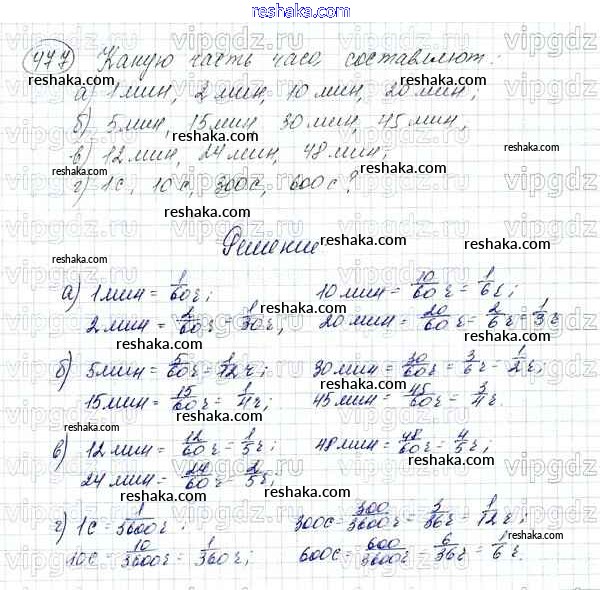 reshaka.com
477 Какую часть часа составляют:
а) 1 мин, 2 мин, 10 мин, 20 мин;
б) 5 мин, 15 мин, 30 мин, 45 мин,
в) 12 мин, 24 мин, 48 мин;
г) 1с, 10с, 300с, 600с?
Решение
а) 1 мин = 1/60 ч; 10 мин = 10/60 ч = 1/6 ч;
2 мин = 2/60 ч = 1/30 ч, 20 мин = 20/60 ч = 2/6 ч = 1/3 ч
б) 5 мин = 5/60 ч = 1/12 ч; 30 мин = 30/60 ч = 3/6 ч = 1/2 ч;
15 мин = 15/60 ч = 1/4 ч; 45 мин = 45/60 ч = 3/4 ч.
в) 12 мин = 12/60 ч = 1/5 ч; 48 мин = 48/60 ч = 4/5 ч;
24 мин = 24/60 ч = 2/5 ч;
г) 1с = 1/3600 ч; 300с = 300/3600 ч = 3/36 ч = 1/12 ч;
10с = 10/3600 ч = 1/360 ч; 600с = 600/3600 ч = 6/36 ч = 1/6 ч.